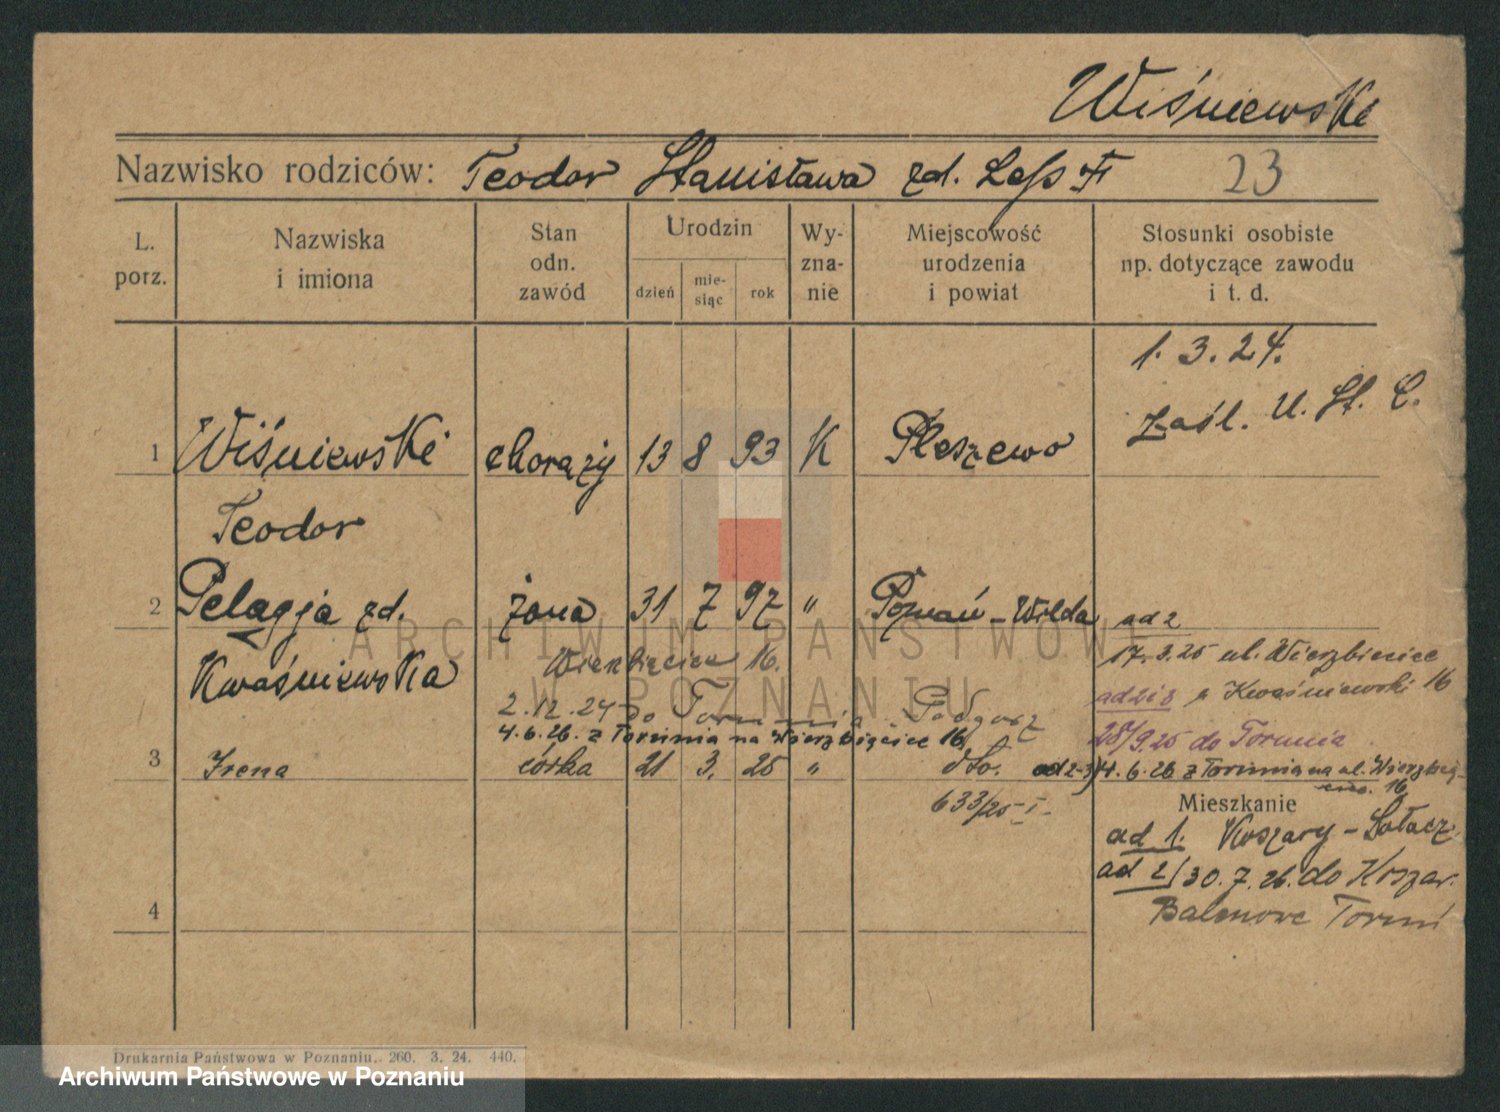 Wiśniewski
Nazwisko rodziców: Teodor Stanisława zd. 23
L. porz.
Nazwiska i imiona
Stan odn. zawód
Urodzin
dzień
mie- siąc
rok
Wy- zna- nie
Miejscowość urodzenia i powiat
Stosunki osobiste np. dotyczące zawodu i t. d.
1. 3. 24.
Zaśl. U. St. C.
1 Wiśniewski chorąży 13 8 93 K Pleszewo
Teodor
2 Pelagja zd. żona 31 7 97 " Poznań - Wilda ad 2
Kwaśniewska Wierzbięcice 16. 17. 3. 25 ul. Wierzbięcice
ad 2 i 3 Kwaśniewski 16
2. 12. 24 do Torunia Podgorz
28/9. 25 do Torunia
4. 6. 26. z Torunia na Wierzbięcice 16
3 Irena córka 21 3. 25 " dto. ad 2-3) 4. 6. 26 z Torunia na ul. Wierzbię-
cice. 16
633/25-I-
Mieszkanie
ad 1. Koszary - Sołacz
ad 2/ 30. 7. 26. do Koszar.
4 Balonowe Toruń
Drukarnia Państwowa w Poznaniu. 260. 3. 24. 440.
ARCHIWUM PAŃSTWOWE
W POZNANIU
Archiwum Państwowe w Poznaniu